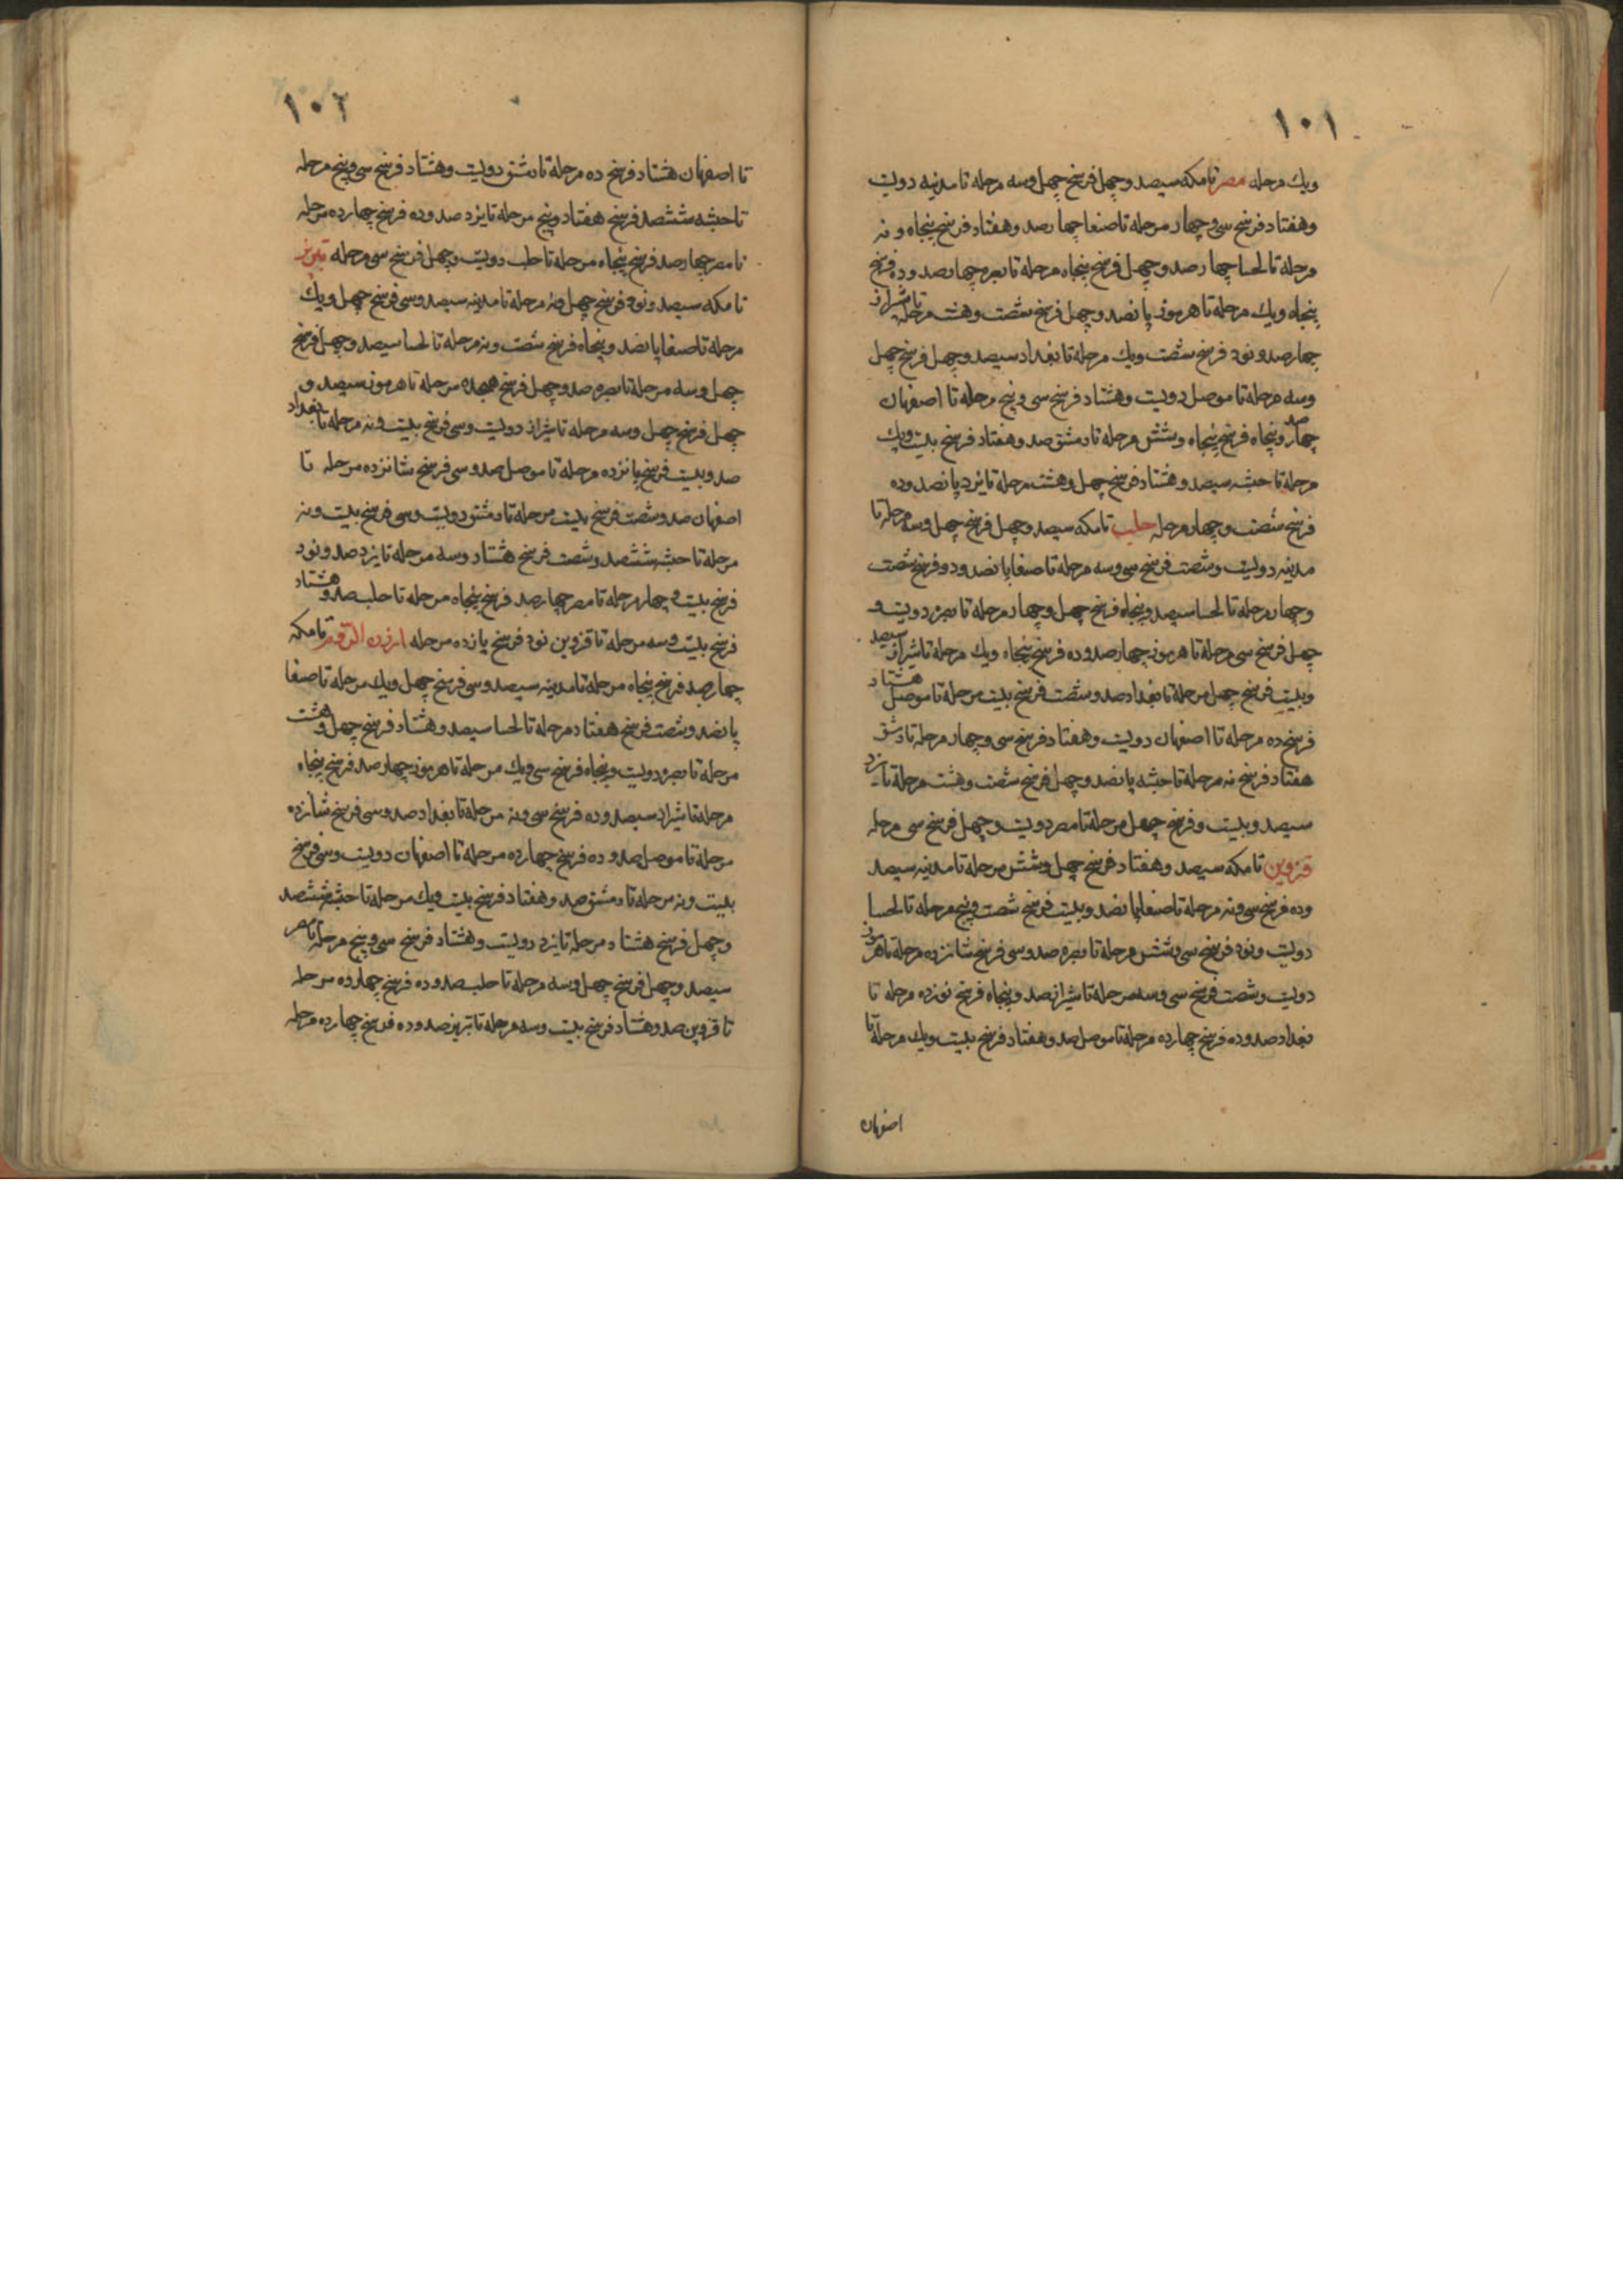 ١٠١
ويك مرحله مصر تا مكه سيصد و چهل فرسخ چهل و سه مرحله تا مدينه دويست
و هفتاد فرسخ سى و چهار مرحله تا صنعا چهار صد و هفتاد فرسخ پنجاه و نه
مرحله تا لحسا چهار صد و چهل فرسخ پنجاه مرحله تا بصره چهار صد و ده فرسخ
پنجاه و يك مرحله تا هرموز پانصد و چهل فرسخ شصت و هشت مرحله تا شيراز
چهار صد و نود فرسخ شصت و يك مرحله تا بغداد سيصد و چهل فرسخ چهل
و سه مرحله تا موصل دويست و هشتاد فرسخ سى و پنج مرحله تا اصفهان
چهار صد و پنجاه فرسخ پنجاه و شش مرحله تا دمشق صد و هفتاد فرسخ بيست و يك
مرحله تا حبشه سيصد و هشتاد فرسخ چهل و هشت مرحله تا يزد پانصد و ده
فرسخ شصت و چهار مرحله حلب تا مكه سيصد و چهل فرسخ چهل و سه مرحله تا
مدينه دويست و شصت فرسخ سى و سه مرحله تا صنعا پانصد و دو فرسخ شصت
و چهار مرحله تا لحسا سيصد و پنجاه فرسخ چهل و چهار مرحله تا بصره دويست و
چهل فرسخ سى مرحله تا هرموز چهار صد و ده فرسخ پنجاه ويك مرحله تا شيراز سيصد
و بيست فرسخ چهل مرحله تا بغداد صد و شصت فرسخ بيست مرحله تا موصل هشتاد
فرسخ ده مرحله تا اصفهان دويست و هفتاد فرسخ سى و چهار مرحله تا دمشق
هفتاد فرسخ نه مرحله تا حبشه پانصد و چهل فرسخ شصت و هشت مرحله تا يزد
سيصد و بيست و فرسخ چهل مرحله تا مصر دويست و چهل فرسخ سى مرحله
قزوين تا مكه سيصد و هفتاد فرسخ چهل و شش مرحله تا مدينه سيصد
و ده فرسخ سى و نه مرحله تا صنعا پانصد و بيست فرسخ شصت و پنج مرحله تا لحسا
دويست و نود فرسخ سى و شش مرحله تا بصره صد و سى فرسخ شانزده مرحله تا هرموز
دويست و شصت فرسخ سى و سه مرحله تا شيراز صد و پنجاه فرسخ نوزده مرحله تا
بغداد صد و ده فرسخ چهارده مرحله تا موصل صد و هفتاد فرسخ بيست ويك مرحله تا
اصفهان
١٠٢
تا اصفهان هشتاد فرسخ ده مرحله تا دمشق دويست و هشتاد فرسخ سى و پنج مرحله
تا حبشه ششصد فرسخ هفتاد و پنج مرحله تا يزد صد و ده فرسخ چهارده مرحله
تا مصر چهار صد فرسخ پنجاه مرحله تا حلب دويست و چهل فرسخ سى مرحله تبريز
تا مكه سيصد و نود فرسخ چهل و نه مرحله تا مدينه سيصد و سى فرسخ چهل و يك
مرحله تا صنعا پانصد و پنجاه فرسخ شصت و نه مرحله تا لحسا سيصد و چهل فرسخ
چهل و سه مرحله تا بصره صد و چهل فرسخ هجده مرحله تا هرموز سيصد و
چهل فرسخ چهل و سه مرحله تا شيراز دويست و سى فرسخ بيست و نه مرحله تا بغداد
صد و بيست فرسخ پانزده مرحله تا موصل صد و سى فرسخ شانزده مرحله تا
اصفهان صد و شصت فرسخ بيست مرحله تا دمشق دويست و سى فرسخ بيست و نه
مرحله تا حبشه ششصد و شصت فرسخ هشتاد و سه مرحله تا يزد صد و نود
فرسخ بيست و چهار مرحله تا مصر چهار صد فرسخ پنجاه مرحله تا حلب صد و هشتاد
فرسخ بيست و سه مرحله تا قزوين نود فرسخ يازده مرحله ارزن الروم تا مكه
چهار صد فرسخ پنجاه مرحله تا مدينه سيصد و سى فرسخ چهل و يك مرحله تا صنعا
پانصد و شصت فرسخ هفتاد مرحله تا لحسا سيصد و هشتاد فرسخ چهل و هشت
مرحله تا بصره دويست و پنجاه فرسخ سى و يك مرحله تا هرموز چهار صد فرسخ پنجاه
مرحله تا شيراز سيصد و ده فرسخ سى و نه مرحله تا بغداد صد و سى فرسخ شانزده
مرحله تا موصل صد و ده فرسخ چهارده مرحله تا اصفهان دويست و سى فرسخ
بيست و نه مرحله تا دمشق صد و هفتاد فرسخ بيست ويك مرحله تا حبشه ششصد
و چهل فرسخ هشتاد مرحله تا يزد دويست و هشتاد فرسخ سى و پنج مرحله تا مصر
سيصد و چهل فرسخ چهل و سه مرحله تا حلب صد و ده فرسخ چهارده مرحله
تا قزوين صد و هشتاد فرسخ بيست و سه مرحله تا تبريز صد و ده فرسخ چهارده مرحله